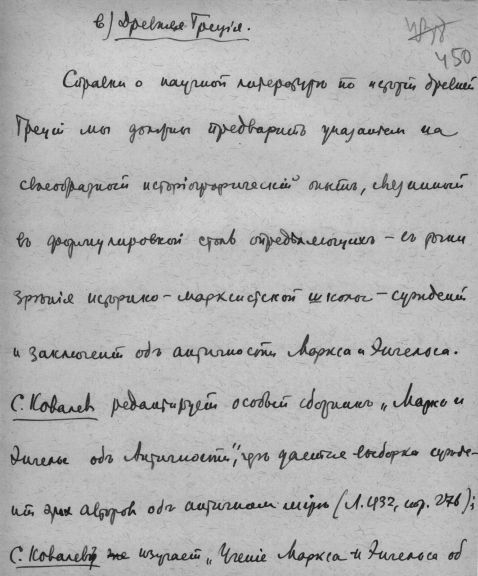 в) Древняя Греція.
450
Справки о научной литературѣ по исторіи древней
Греціи мы должны предварить указаніем на
своеобразный исторіографическій опытъ, связанный
въ формулировкой столь опредѣляющихъ – съ точки
зрѣнія историко-марксистской школы – сужденій
и заключеній объ античности Маркса и Энгельса.
С. Ковалев редактирует особый сборникъ „Марксъ и
Энгельс объ Античности", гдѣ даются выборка сужде-
ній этих авторов объ античном мірѣ (Л. 1932, стр. 276);
С. Ковалевъ же изучает „Ученіе Маркса и Энгельса об